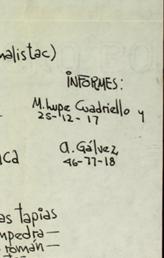 nalistac)
INFORMES:
M. Lupe Cuadriello y
25-12-17
ca
a. Gálvez
46-77-18
as tapias
mpedra—
román—